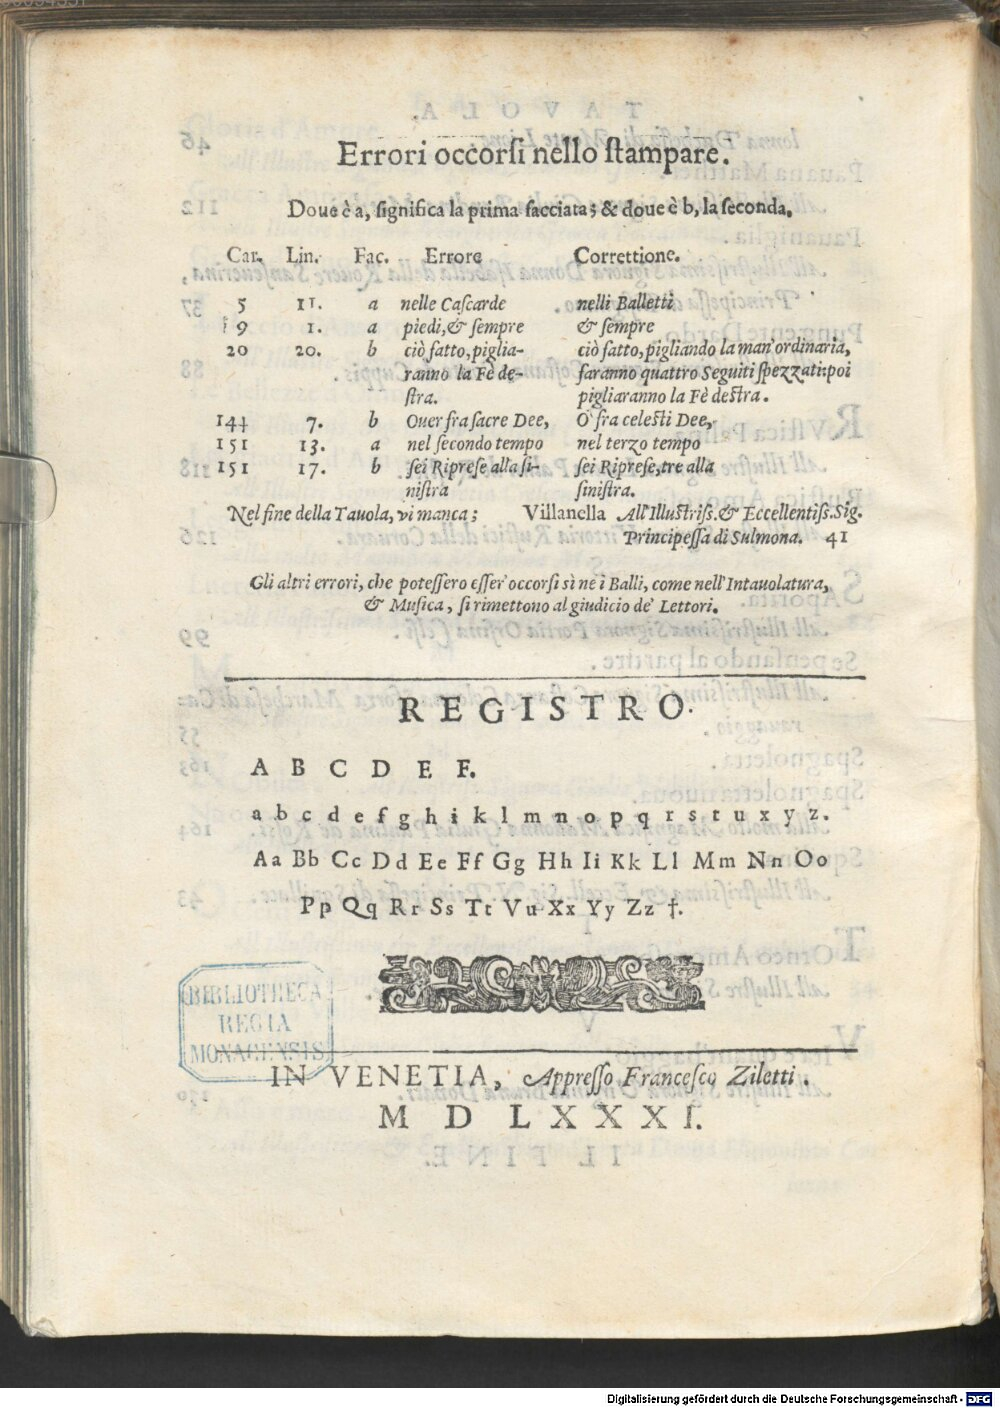 Errori occorſi nello ſtampare.
Doue è a, ſignifica la prima facciata; & doue è b, la ſeconda.
Car. Lin. Fac. Errore Correttione.
5 11. a nelle Caſcarde nelli Balletti
9 1. a piedi, & ſempre & ſempre
20 20. b ciò fatto, piglia- ciò fatto, pigliando la man' ordinaria,
ranno la Fè de- faranno quattro Seguiti ſpezzati: poi
ſtra. pigliaranno la Fè deſtra.
144 7. b Ouer fra ſacre Dee, O' fra celeſti Dee,
151 13. a nel ſecondo tempo nel terzo tempo
151 17. b ſei Ripreſe alla ſi- ſei Ripreſe, tre alla
niſtra ſiniſtra.
Nel fine della Tauola, vi manca; Villanella All'Illuſtriſs. & Eccellentiſs. Sig.
Principeſſa di Sulmona. 41
Gli altri errori, che poteſſero eſſer' occorſi sì ne i Balli, come nell'Intauolatura,
& Muſica, ſi rimettono al giudicio de' Lettori.
REGISTRO.
A B C D E F.
a b c d e f g h i k l m n o p q r s t u x y z.
Aa Bb Cc Dd Ee Ff Gg Hh Ii Kk Ll Mm Nn Oo
Pp Qq Rr Ss Tt Vu Xx Yy Zz †.
BIBLIOTHECA
REGIA
MONACENSIS
IN VENETIA, Appreſſo Franceſco Ziletti.
M D L X X X I.
Digitalisierung gefördert durch die Deutsche Forschungsgemeinschaft - DFG